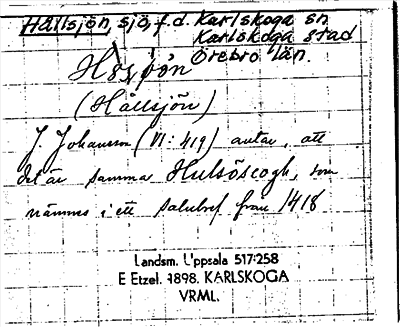 Hällsjön, sjö, f.d. Karlskoga sn
Karlskoga stad
Örebro län.
Hösjön
(Hällsjön)
J. Johansson (VI: 419) antar, att
det är samma Hulsöscogh, som
nämnes i ett salubref från 1418
Landsm. Uppsala 517:258
E Etzel. 1898. KARLSKOGA
VRML.